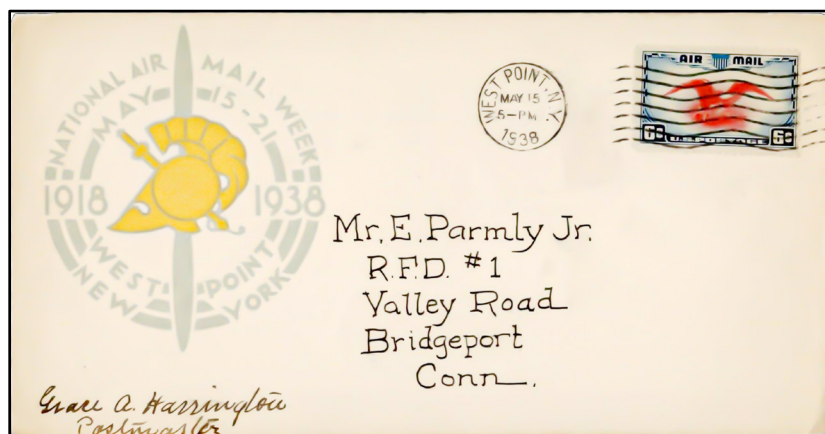 NATIONAL AIR MAIL WEEK
MAY 15-21
1918 1938
WEST POINT
NEW YORK
WEST POINT. N.Y.
MAY 15
5-PM
1938
AIR MAIL
6¢ U.S. POSTAGE 6¢
Mr. E. Parmly Jr.
R.F.D. #1
Valley Road
Bridgeport
Conn.
Grace A. Harrington
Postmaster